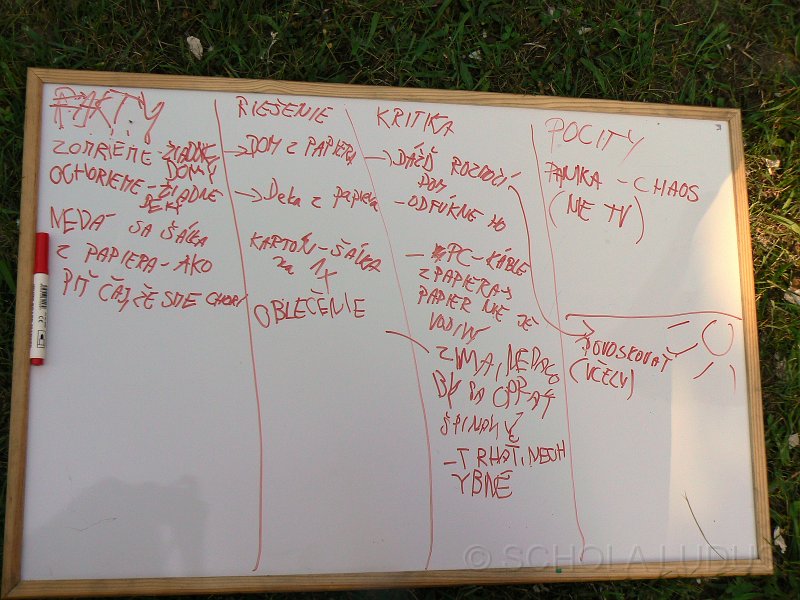 FAKTY
ZOMRIEME - ŽIADNE
DOMY
OCHORIEME - ŽIADNE
DEKY
NEDÁ SA ŠÁLKA
Z PAPIERA - AKO
PIŤ ČAJ, ŽE SME CHORÍ
RIEŠENIE
DOM Z PAPIERA
Deka z papiera
KARTÓN - ŠÁLKA
na 1x
OBLEČENIE
KRITIKA
DÁŽĎ ROZMOČÍ
DOM
- ODFÚKNE HO
- PC - KÁBLE
Z PAPIERA →
PAPIER NIE JE
VODIVÝ
ZIMA, NEDALO
BY SA OPRAŤ
ŠPINAVÉ
- TRHAŤ, NEOH
YBNÉ
POCITY
PANIKA - CHAOS
(NIE TV)
NAVOSKOVAŤ
(VČELY)
© SCHOLA LUDUS